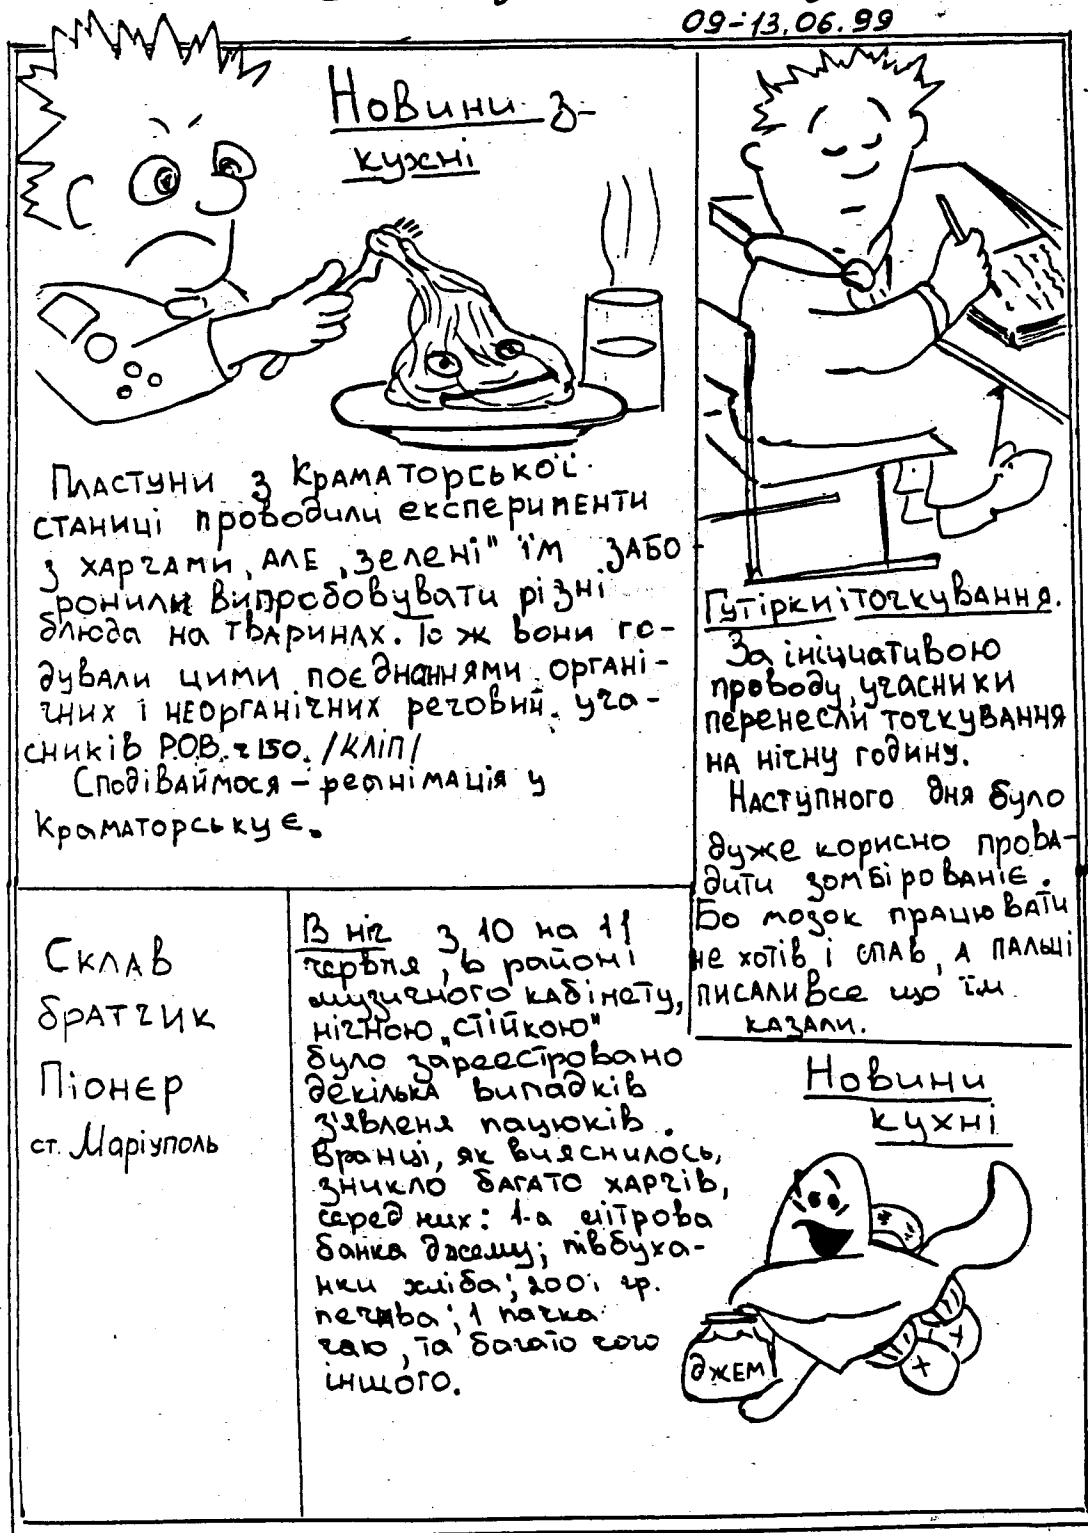 09-13.06.99
Новини з-
кухні
Пластуни з Краматорської
станиці проводили експерименти
з харчами, але „зелені" їм забо
ронили випробовувати різні
блюда на тваринах. То ж вони го-
дували цими поєднаннями органі-
чних і неорганічних речовин, уча-
сників Р.О.В. ч 150. /КЛІП/
Сподіваймося – реанімація у
Краматорську є.
Гутірки і точкування.
За ініциативою
проводу, учасники
перенесли точкування
на нічну годину.
Наступного дня було
дуже корисно прова-
дити зомбірованіє.
Бо мозок працювати
не хотів і спав, а пальці
писали все що їм
казали.
Склав
братчик
Піонєр
ст. Маріуполь
В ніч з 10 на 11
червня, в районі
музичного кабінету,
нічною „стійкою"
було зареестровано
декілька випадків
з'явленя пацюків.
Вранці, як вияснилось,
зникло багато харчів,
серед них: 1-а літрова
банка джему; півбуха-
нки хліба; 200 гр.
печива; 1 пачка
чаю, та багато чого
іншого.
Новини
кухні
джем